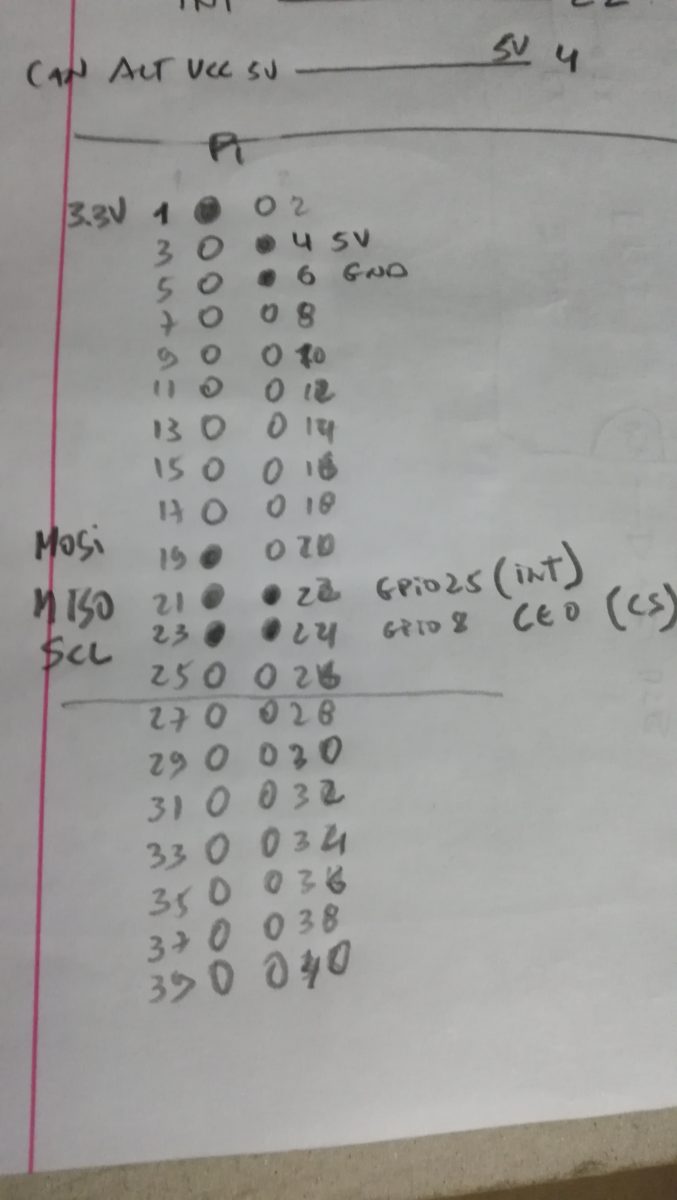 INT 22
CAN ALT VCC 5V 5V 4
Pi
3.3V 1 2
3 4 5V
5 6 GND
7 8
9 10
11 12
13 14
15 16
17 18
MOSi 19 20
MISO 21 22 GPiO25 (iNT)
SCL 23 24 GPIO 8 CE0 (CS)
25 26
27 28
29 30
31 32
33 34
35 36
37 38
39 40